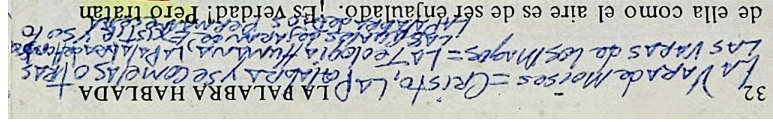 32 LA PALABRA HABLADA
LA VARA de Moises = CRISTO, LA Palabra y se come LAS OTRAS
LAS VARAS de LOS Magos = LA Teología Humana, LA Palabra de
LAS de EXISTIR y SOLO
LA PALABRA de DIOS
de ella como el aire es de ser enjaulado. ¡Es verdad! Pero tratan